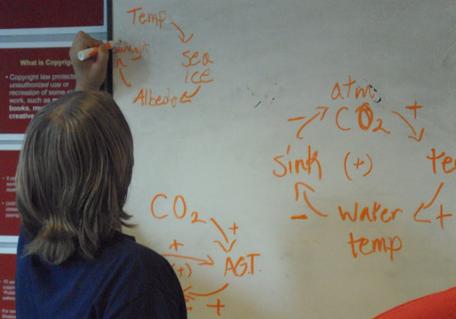 Temp
sea
ice
Albedo
What is Copyrig
Copyright law protec
unauthorized use or
recreation of some
work, such as
books, mu
creative
atm
CO₂
+
-
sink
(+)
te
-
Water
temp
+
CO₂
+
+
(+)
A.G.T.
+